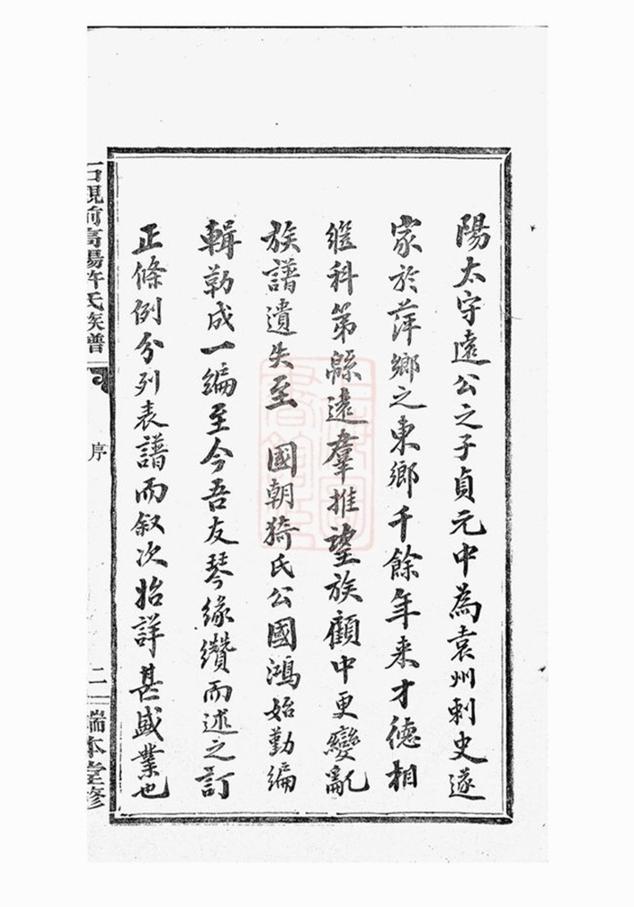 陽太守遠公之子貞元中為袁州刺史遂
家於萍鄉之東鄉千餘年来才德相
继科第緜逺羣推望族顧中更變亂
族譜遺失至　國朝猗氏公國鴻始勤編
輯勒成一編至今吾友琴緣纘而述之訂
正條例分列表譜而叙次始詳甚盛業也
石觀前高陽許氏族譜
序
二
端本堂修